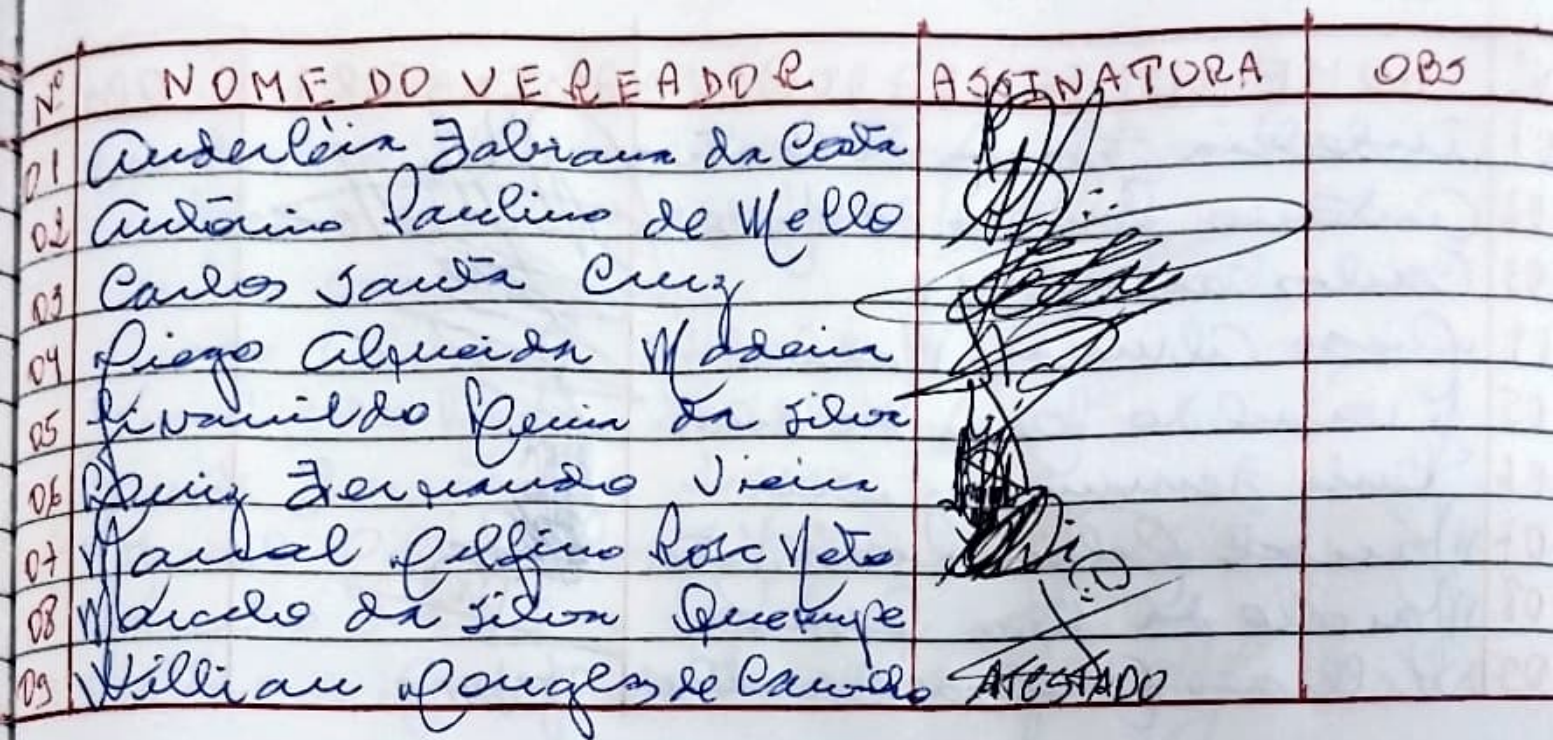 Nº NOME DO VEREADOR ASSINATURA OBS
01 Anderléia Fabiana da Costa
02 Antônio Paulino de Mello
03 Carlos Santa Cruz
04 Diego Almeida Madeira
05 Givanildo da Silva
06 Luiz Fernando Vieira
07 Marcal Delfino Rosa Neto
08 Marcelo da Silva
09 Willian Douglas de Carvalho ATESTADO